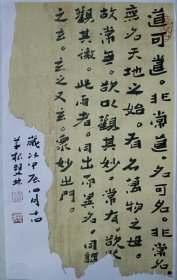 道可道。非常道。名可名。非常名。
無名天地之始。有名萬物之母。
故常無。欲以觀其妙。常有。欲以
觀其徼。此兩者。同出而異名。同謂
之玄。玄之又玄。衆妙之門。
歲次甲辰四月十